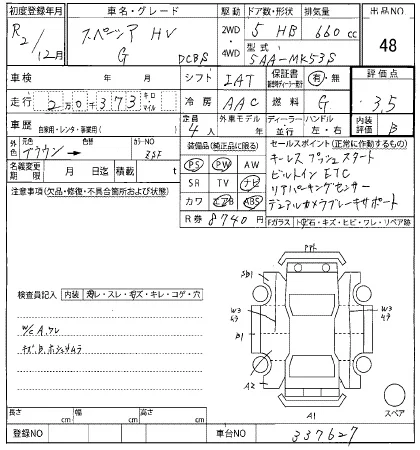 初度登録年月 車名・グレード 駆動 ドア数・形状 排気量 出品NO
R2/12月 スペーシア HV G DCBS 2WD 4WD 5 HB 660cc 48
型式 5AA-MK53S
車検 年 月 シフト IAT 保証書 有・無 燃料 評価点
走行 2万0千373 キロ マイル 冷房 AAC 燃料 G 3.5
車歴 自家用・レンタ・事業用( ) 定員 4人 外車モデル 年 ディーラー 並行 ハンドル 左・右 内装 B
外色 元色 ブラウン 色替 カラーNO ZSF
装備品(純正品に限る) セールスポイント(正常に作動するもの)
名義変更期限 月 日迄 積載 t
PS PW AW
SR TV ナビ
カワ エアB ABS
R券 8740円
キーレス プッシュスタート
ビルトインETC
リアパーキングセンサー
デュアルカメラブレーキサポート
注意事項(欠品・修復・不具合箇所および状態)
Fガラス トビ石・キズ・ヒビ・ワレ・リペア跡
検査員記入 内装 汚レ・スレ・キズ・キレ・コゲ・穴
W/C A ワレ
キズ B
W3
W3
B1
A2
A1
スペア
長さ cm 幅 cm 高さ cm
登録NO 車台NO 337627